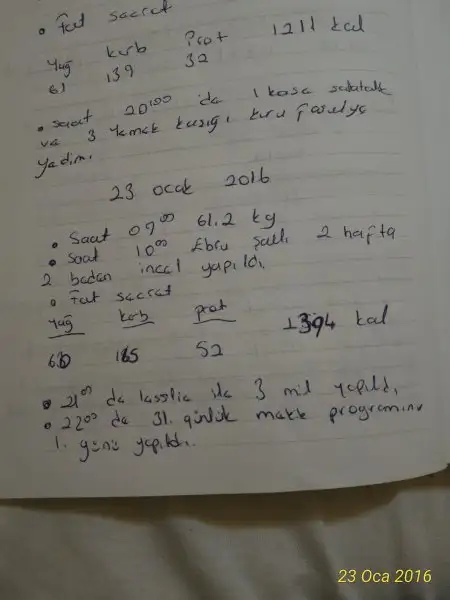 • Fat secret
Yağ karb Prot 1211 kal
61 139 32
• saat 20:00 'da 1 kase salatalık
ve 3 yemek kaşığı kuru fasulye
yedim.
23 ocak 2016
• Saat 07⁰⁰ 61.2 kg
• saat 10⁰⁰ Ebru Şallı 2 hafta
2 beden incel yapıldı.
• Fat secret
Yağ karb prot 1394 kal
60 165 52
• 21⁰⁰ da lesslie ile 3 mil yapıldı,
• 22⁰⁰ da 31 günlük programının
1. günü yapıldı.
23 Oca 2016